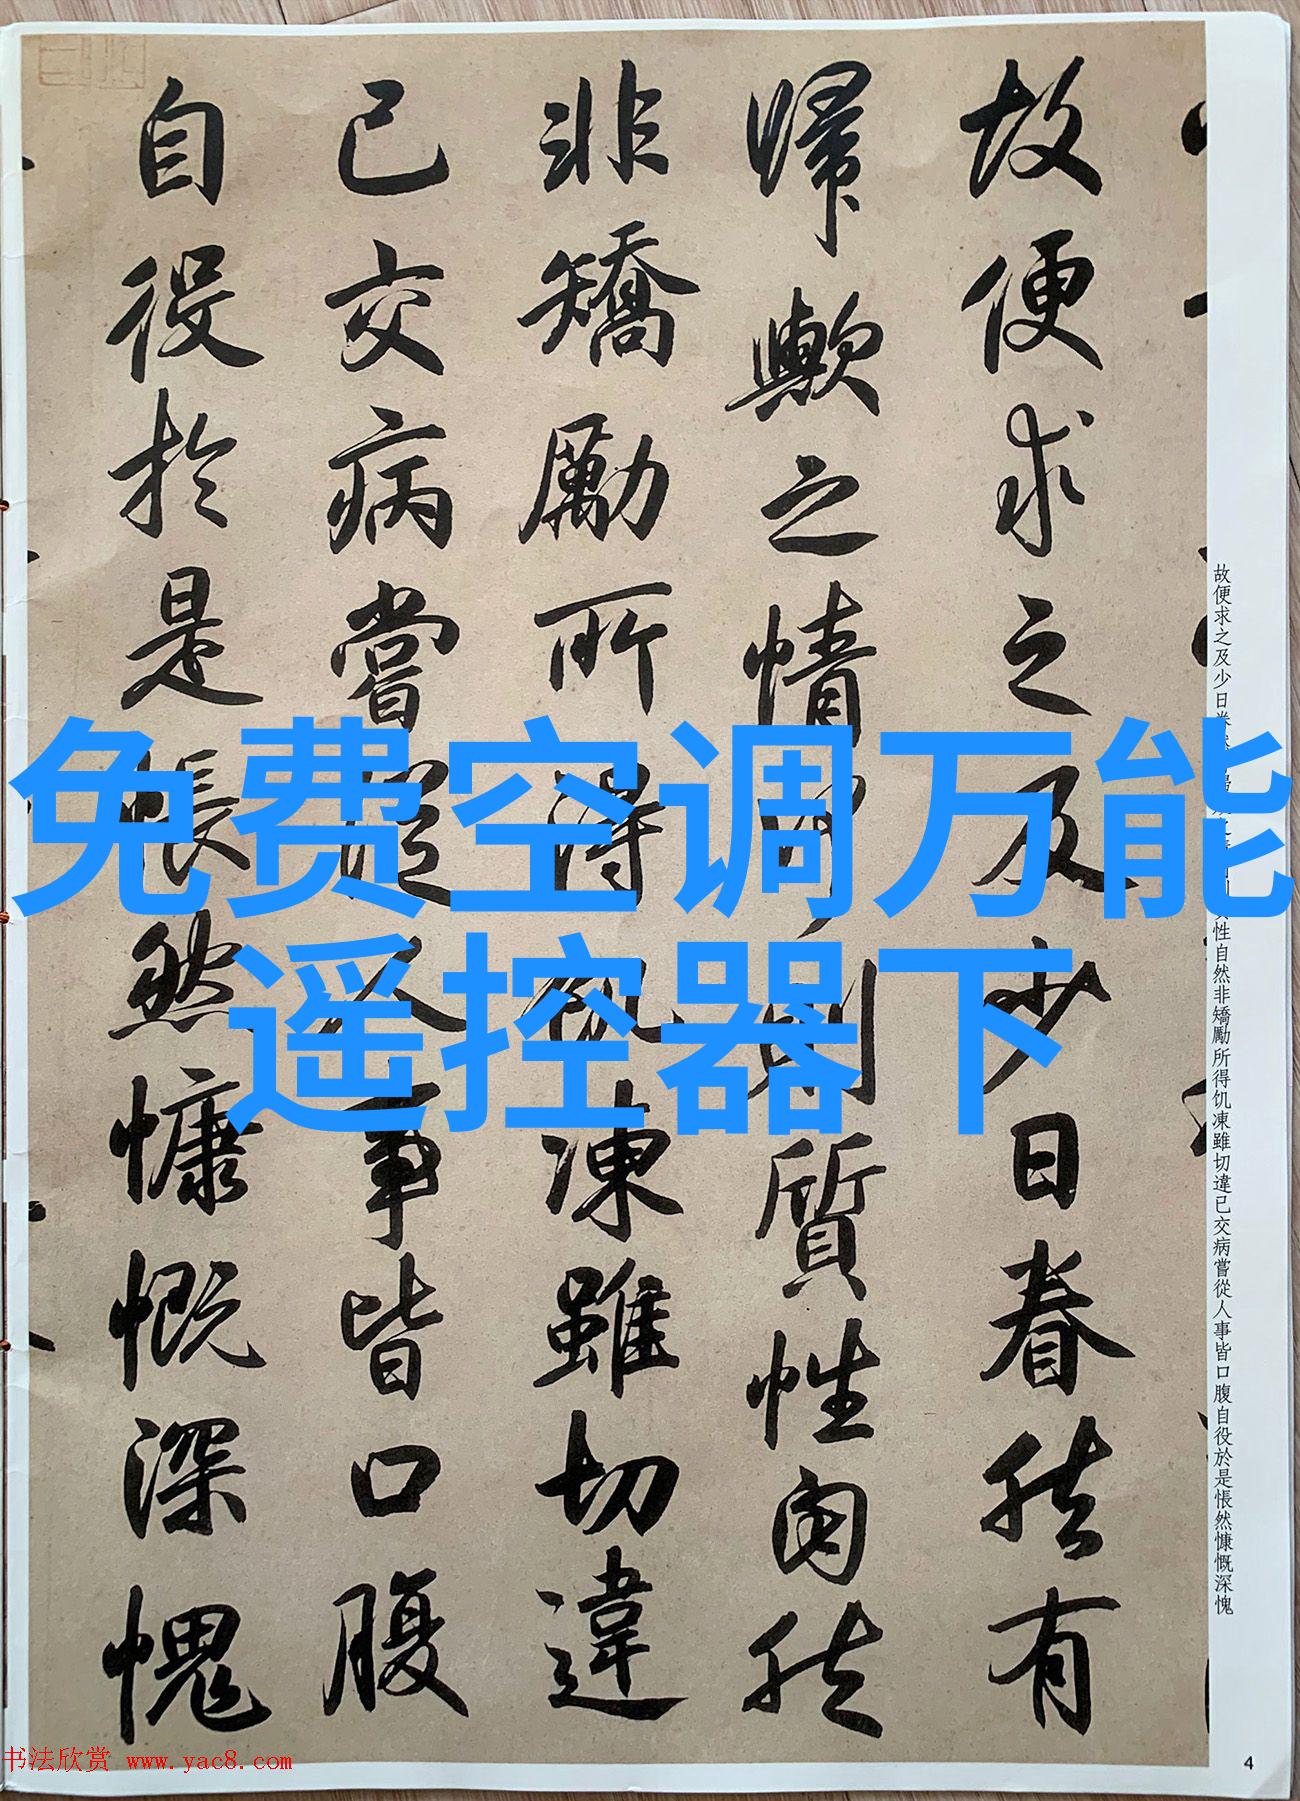 免费空调万能
遥控器下
故便求之及少日眷然有
歸歟之情則質性自然
非矯勵所得飢凍雖切違
已交病嘗從人事皆口腹
自役於是悵然慷慨深愧
故便求之及少日
性自然非矯勵所得饥凍雖切違已交病嘗從人事皆口腹自役於是悵然慷慨深愧
书法欣赏 www.yac8.com
4